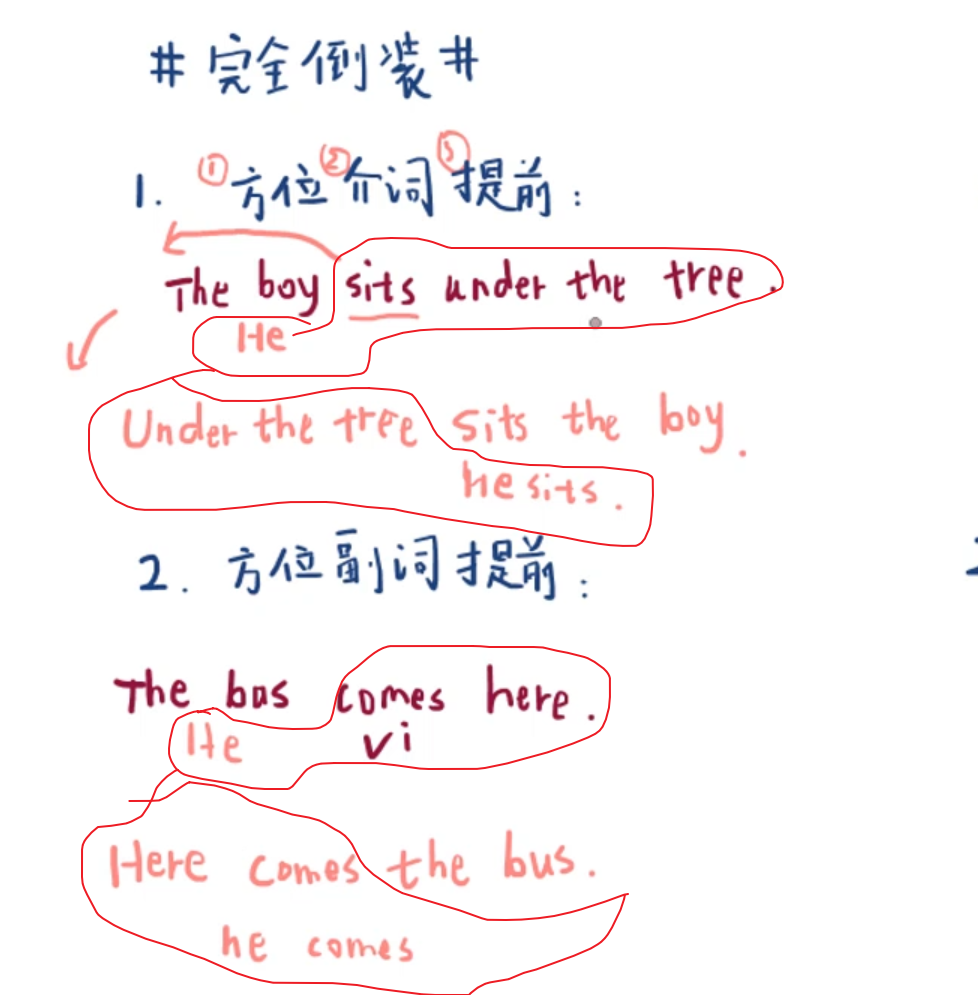 #完全倒装#
1. ①方位②介词③提前：
The boy sits under the tree.
He
Under the tree sits the boy.
he sits.
2. 方位副词提前：
The bus comes here.
He vi
Here comes the bus.
he comes